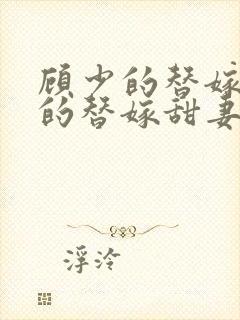 顾少的替嫁
的替嫁甜妻
浮泠